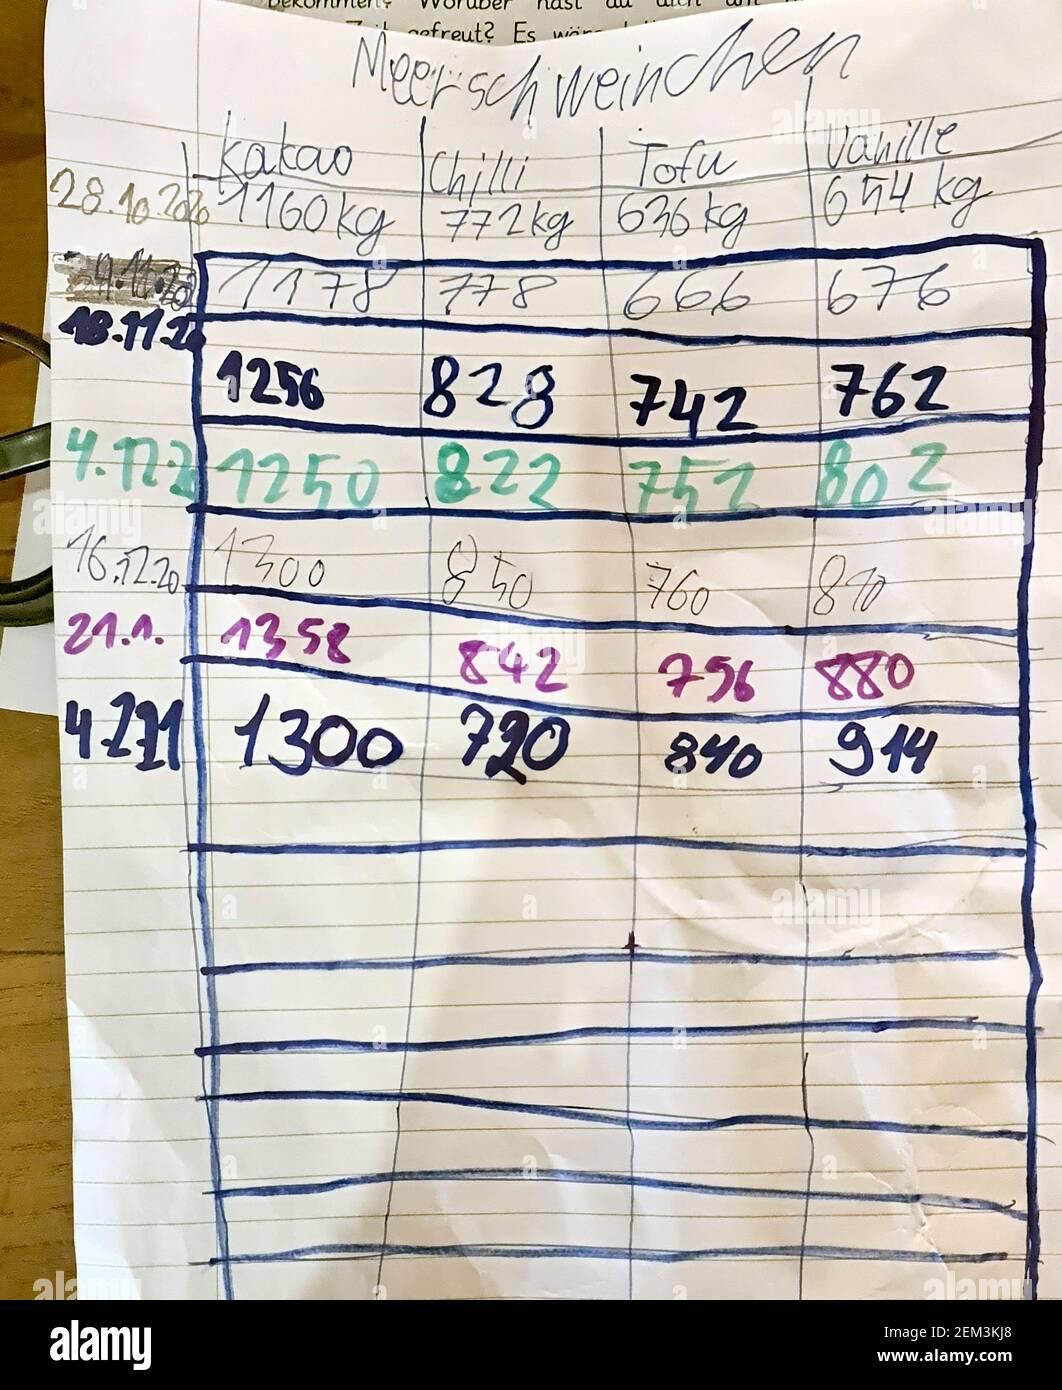 bekommen? Worüber hast du dich am
gefreut? Es wäre
Meerschweinchen
Kakao Chilli Tofu Vanille
28.10.2020 1160kg 772kg 636kg 654kg
11.11.20 1178 778 666 676
18.11.20
1256 828 742 762
4.12.20 1250 822 752 802
16.12.20 1300 850 760 810
21.1. 1358 842 796 880
4.2.21 1300 720 840 914
alamy
Image ID: 2EM3KJ8
www.alamy.com